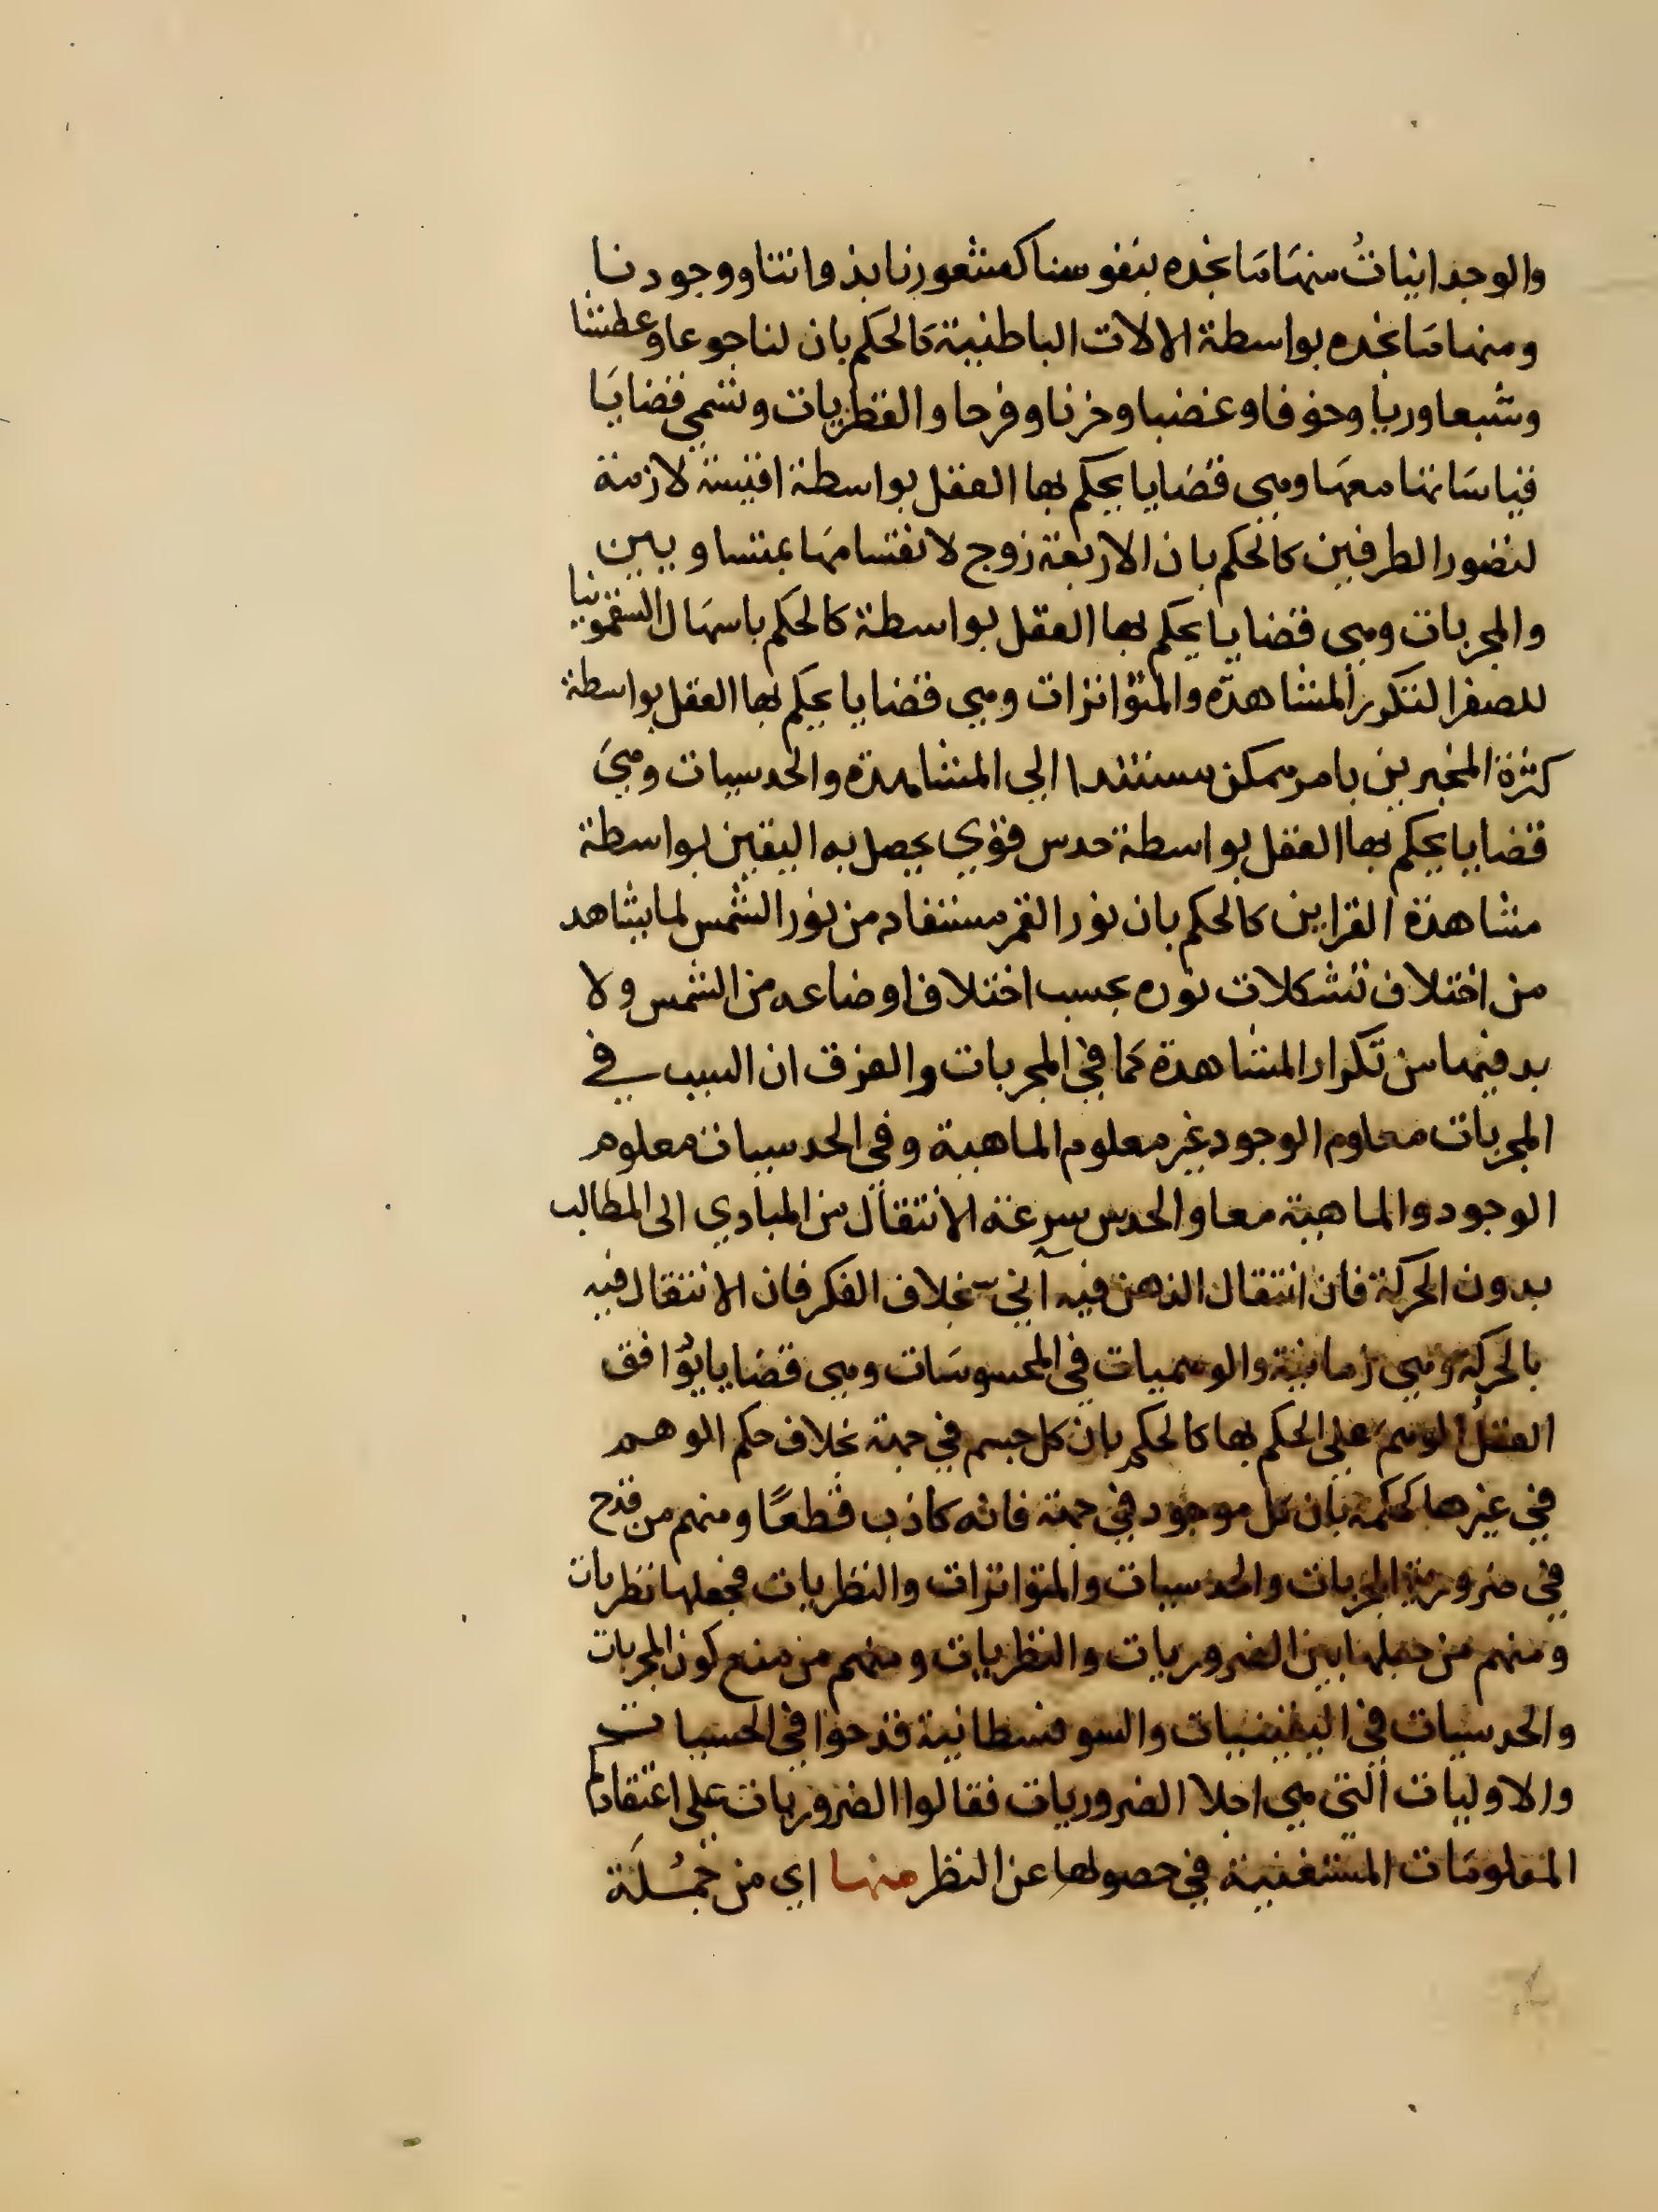 والوجدانيات منها ما نجده بنفوسنا كشعورنا بذواتنا ووجودنا
ومنها ما نجده بواسطة الالات الباطنية كالحكم بان لنا جوعا وعطشا
وشبعا وريا وخوفا وغضبا وحزنا وفرحا والفطريات وتسمي قضايا
قياساتها معها وهي قضايا يحكم بها العقل بواسطة اقيسة لازمة
لتصور الطرفين كالحكم بان الاربعة زوج لانقسامها بمتساويين
والمجربات وهي قضايا يحكم بها العقل بواسطة كالحكم باسهال السقمونيا
للصفرا لتكرر المشاهدة والمتواترات وهي قضايا يحكم بها العقل بواسطة
كثرة المخبرين بامر ممكن مستندا الي المشاهدة والحدسيات وهي
قضايا يحكم بها العقل بواسطة حدس قوي يحصل به اليقين بواسطة
مشاهدة القراين كالحكم بان نور القمر مستفاد من نور الشمس لما يشاهد
من اختلاف تشكلات نوره بحسب اختلاف اوضاعه من الشمس ولا
بد فيها من تكرار المشاهدة كما في المجربات والفرق ان السبب في
المجربات معلوم الوجود غير معلوم الماهية وفي الحدسيات معلوم
الوجود والماهية معا والحدس سرعة الانتقال من المبادي الى المطالب
بدون الحركة فان انتقال الذهن فيه آني بخلاف الفكر فان الانتقال فيه
بالحركة وهي زمانية والوهميات في المحسوسات وهي قضايا يوافق
العقل الوهم على الحكم بها كالحكم بان كل جسم في جهة بخلاف حكم الوهم
في غيرها كحكمه بان كل موجود في جهة فانه كاذب قطعًا ومنهم من قدح
في ضرورية المجربات والحدسيات والمتواترات والنظريات فجعلها نظريات
ومنهم من جعلها بين الضروريات والنظريات ومنهم من منع كون المجربات
والحدسيات في اليقينيات والسوفسطانية قدحوا في الحسيات
والاوليات التي هي اجلا الضروريات فقالوا الضروريات على اعتقادكم
المعلومات المستغنية في حصولها عن النظر منها اي من جملة